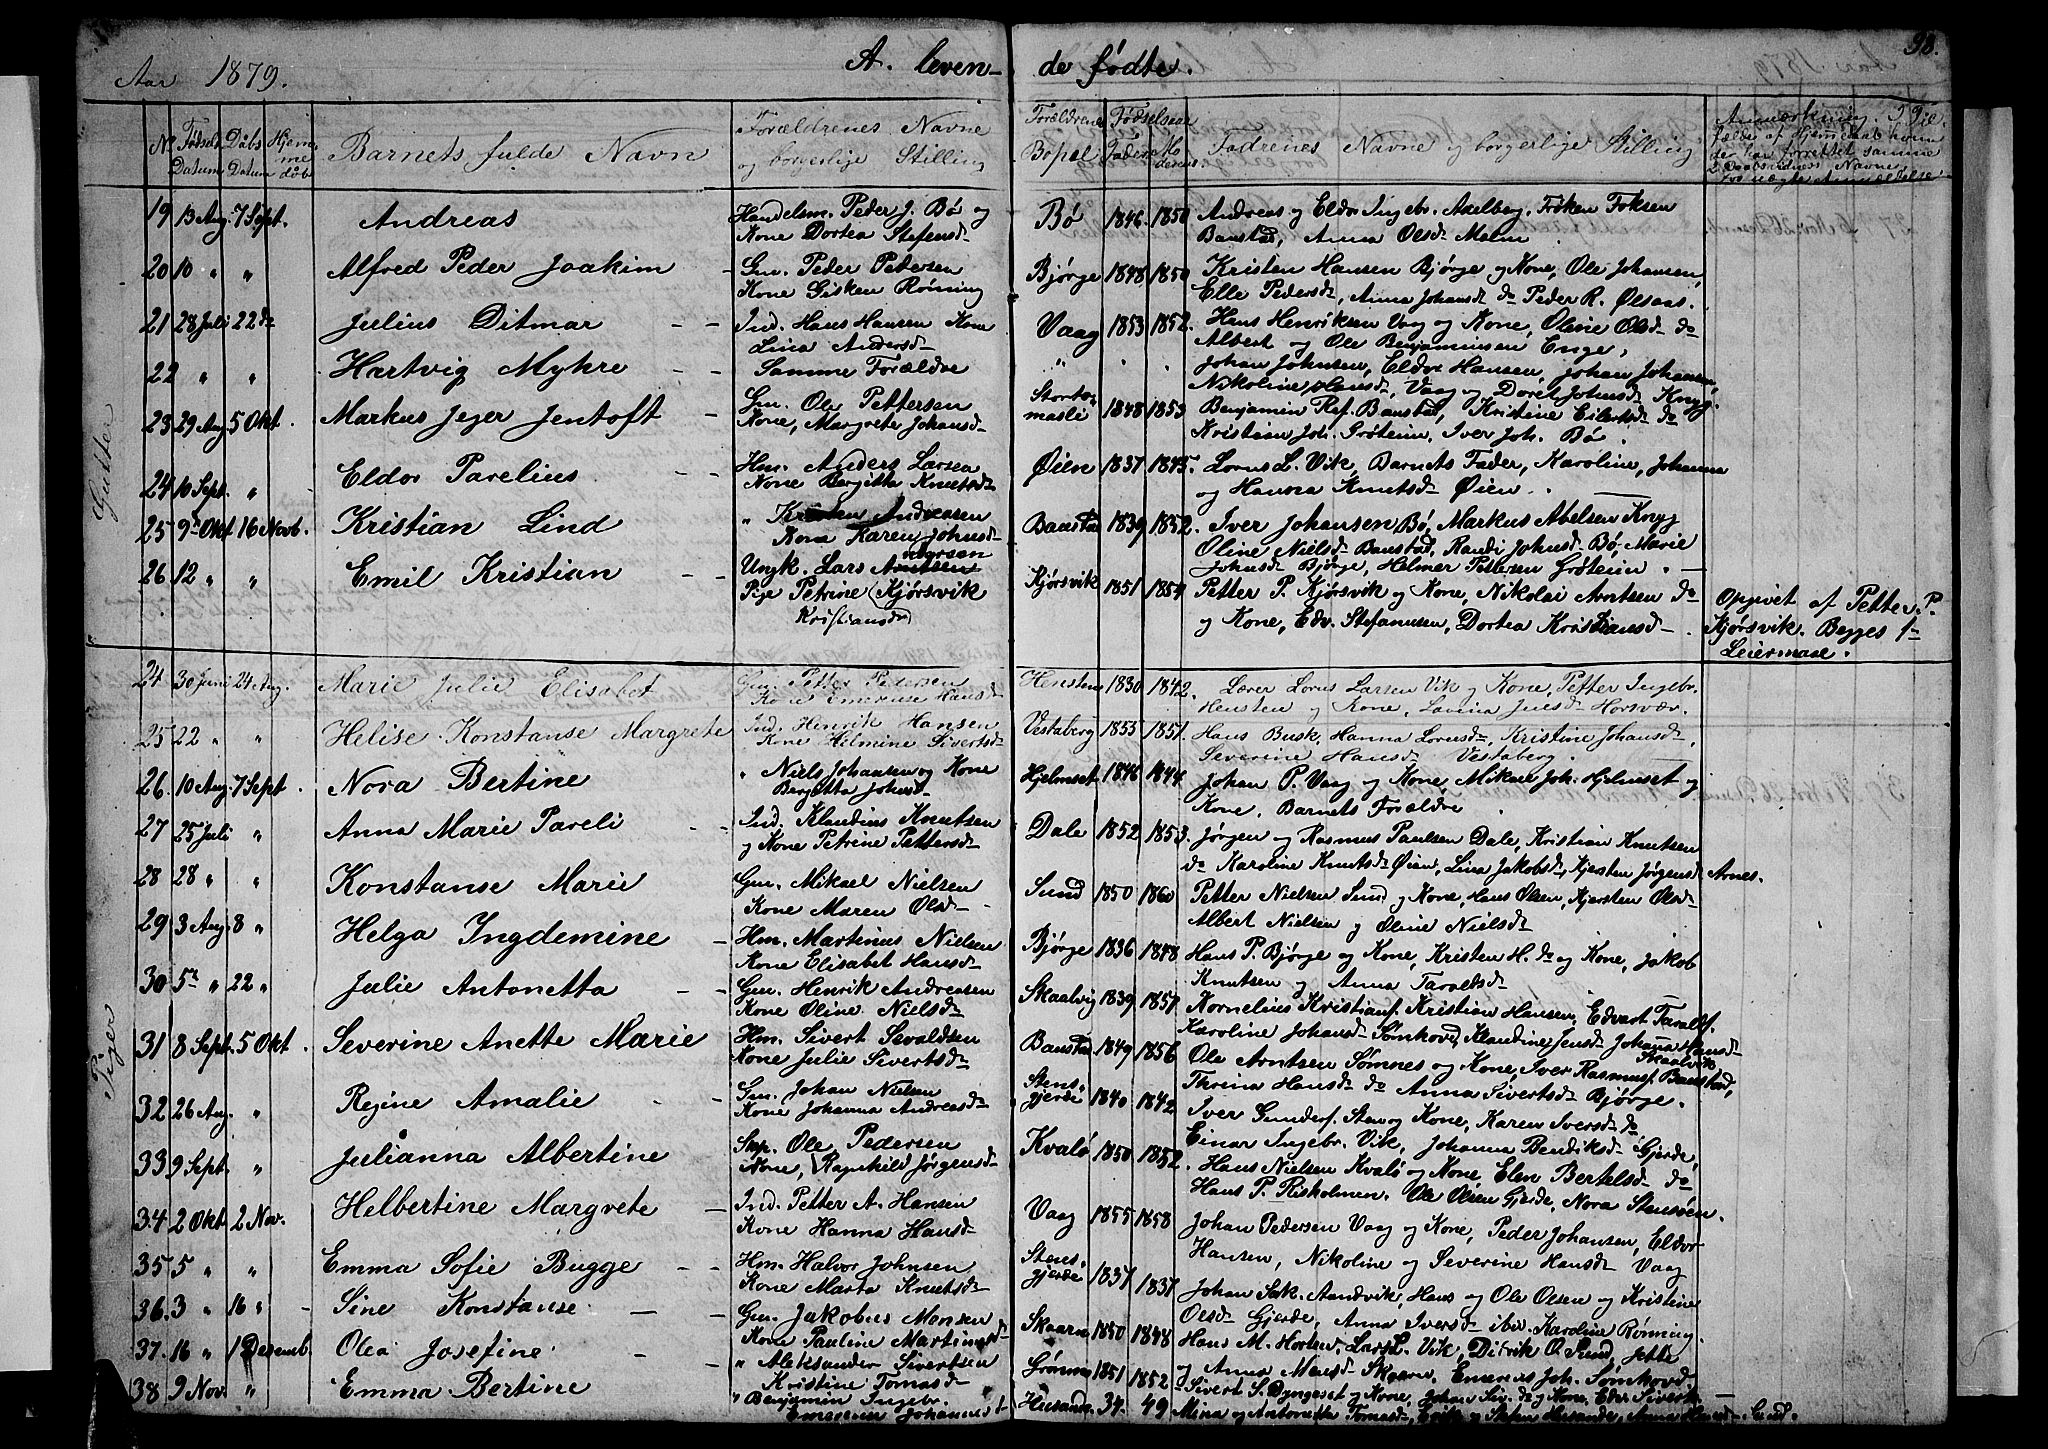 98.
Aar 1879.
A. leven-
de fødte.
No Fødsels Datum Daabs Datum Hjemmedøbt Barnets fulde Navn Forældrenes Navne og borgerlige Stilling
Forældrenes Bopæl Fødselsaar Faders Moderens Fadrenes Navne og borgerlige Stilling
Gutter
19 13 Aug. 7 Sept. Andreas Handelsm. Peder J. Bø og
Kone Dortea Stefensd. Bø 1846. 1850 Andreas og Eldor Ingebr. Axelberg, Frøken Foksen
Baustad, Anna Olsd. Malm.
20 10 " " Alfred Peder Joakim Gm. Peder Petersen
Kone Gisken Rønning Bjørge 1848 1850 Kristen Hansen Bjørge og Kone, Ole Johansen,
Elle Pedersd., Anna Johansd. do Peder R. Ølsaas.
21 28 Juli 22 do Julius Ditmar Ind. Hans Hansen Kone
Lina Andersd. Vaag 1853 1852. Hans Henriksen Vaag og Kone, Oline Olsd. do
Albert og Ole Benjaminsen Enge,
22 " " Hartvig Myhre Samme Forældre " " " Johan Johnsen, Eldor Hansen, Johan Johansen,
Nikoline Hansd., Vaag og Doret Johnsd. Knyg.
23 29 Aug. 5 Okt. Markus Jeger Jentoft Gm. Ole Pettersen
Kone, Margrete Johansd. 1848 1853 Benjamin Ref. Baustad, Kristine Eilertsd. do
Kristian Joh. Grøteim, Iver Joh. Bø.
24 10 Sept. " Eldor Parelius Hm. Anders Larsen
Kone Bergitta Knutsd. Øien 1837 1845. Lorns L. Vik, Barnets Fader, Karoline, Johanna
og Hansea Knutsd. Øien.
25 9de Okt. 16 Novb. Kristian Lind " Kristen Andreasen
Kone Karen Johnsd. Baustad 1839 1852. Iver Johansen Bø, Markus Abelsen Knyg
Oline Nielsd. Baustad, Randi Johnsd. Bø, Marie
Johnsd. Bjørge, Helmer Pettersen Grøteim.
26 12 " " Emil Kristian Ungk. Lars
Pige Petrine (Kjørsvik
Kristiansd.) Kjørsvik 1851 1854 Petter P. Kjørsvik og Kone, Nikolai Arntsen do
og Kone, Edv. Stefanusen, Dortea Kristiansd. Opgivet af Petter P.
Kjørsvik. Begges 1ste
Leiermaal.
Piger
24 30 Juni 24 Aug. Marie Julie Elisabet Gm. Petter Pedersen
Kone Emerense Hansd. Hensten 1830 1842. Lærer Lorns Larsen Vik og Kone, Petter Ingebr.
Hensten og Kone, Lavina Jensd. Horsvær.
25 22 " " Helise Konstanse Margrete Ind. Henrik Hansen
Kone Hilmine Sivertsd. Vestaberg 1855 1851. Hans Busk, Hanna Lornsd., Kristine Johansd.,
Severine Hansd. Vestaberg.
26. 10 Aug. 7 Sept. Nora Bertine " Niels Johansen og Kone
Bergitta Johnsd. Hjelmset 1846 1844. Johan P. Vaag og Kone, Mikael Joh. Hjelmset og
Kone, Barnets Forældre
27 25 Juli " Anna Marie Pareli Ind. Klaudius Knutsen
og Kone Petrine Pettersd. Dale 1852 1853. Jørgen og Rasmus Paulsen Dale, Kristian Knutsen
do Karoline Knutsd. Øien, Lina Jakobsd., Kjersten Jørgensd. Arnes.
28 28 " " Konstanse Marie Gm. Mikael Nielsen
Kone Maren Olsd. Sund 1850 1860 Petter Nielsen Sund og Kone, Hans Olsen, Kjersten Olsd.
Albert Nielsen og Oline Nielsd.
29 3 Aug. 8 " Helga Ingdemine Hm. Martinus Nielsen
Kone Elisabet Hansd. Bjørge 1836 1848 Hans P. Bjørge og Kone, Kristen H. do og Kone, Jakob
Knutsen og Anna Taraldsd.
30 5te " 22 " Julie Antonetta Gm. Henrik Andreasen
Kone Oline Nielsd. Skaalvig 1839 1857. Kornelius Kristians., Kristian Hansen, Edvart Taralds.
Karoline Johansd. Somhovd, Klaudine Jensd. Johanna Hansd.
Skaalvik
31 8 Sept. 5 Okt. Severine Anette Marie Hm. Sivert Sevaldsen
Kone Julie Sivertsd. Baustad 1849 1856 Ole Arntsen Sømnes og Kone, Iver Rasmus. Baustad,
Thrina Hansd. do Anna Sivertsd. Bjørge.
32 26 Aug. " Regine Amalie Gm. Johan Nielsen
Kone Johanna Andreasd. Stensgjerde 1840 1842 Iver Gunders. Sten og Kone, Karen Iversd. do
Einar Ingebr. Vik, Johanna Bendiksd. Gjerde,
33 9 Sept. " Julianna Albertine Skp. Ole Pedersen
Kone, Ragnhild Jørgensd. Kvalø 1850 1852. Hans Nielsen Kvalø og Kone, Elen Bertelsd. do
Hans P. Riskolmen. Ole Olsen Gjerde, Nora Stensøen.
34 2 Okt. 2 Nov. Helbertine Margrete Ind. Petter A. Hansen
Kone Hanna Hansd. Vaag 1855 1858 Johan Pedersen Vaag og Kone, Peder Johansen, Eldor
Hansen, Nikoline og Severine Hansd. Vaag
35 5 " " Emma Sofie Bugge Hm. Halvor Johnsen
Kone Marta Knutsd. Stensgjerde 1837 1837 Johan Sak. Aandvik, Hans og Ole Olsen og Kristine
Olsd. Gjerde, Anna Iversd. ibv. Karoline Rønning.
36. 3 " 16 " Sine Konstanse Gm. Jakobus Monsen
Kone Pauline Martinusd. Skaarn 1850 1848 Hans M. Horten, Lars L. Vik, Ditrik O. Sund, Jette
og Anna Monsd. Skaarn,
37. 16 " 1 Desemb. Olea Josefine " Aleksander Sivertsen
Kristine Tomasd. 1851 1852 Sivert S. Dyngeset og Kone,
38 9 Nov. " Emma Bertine " Benjamin Ingebr.
Johannesd. Husand. 34. 49 Mina og Antonette Tomasd.,